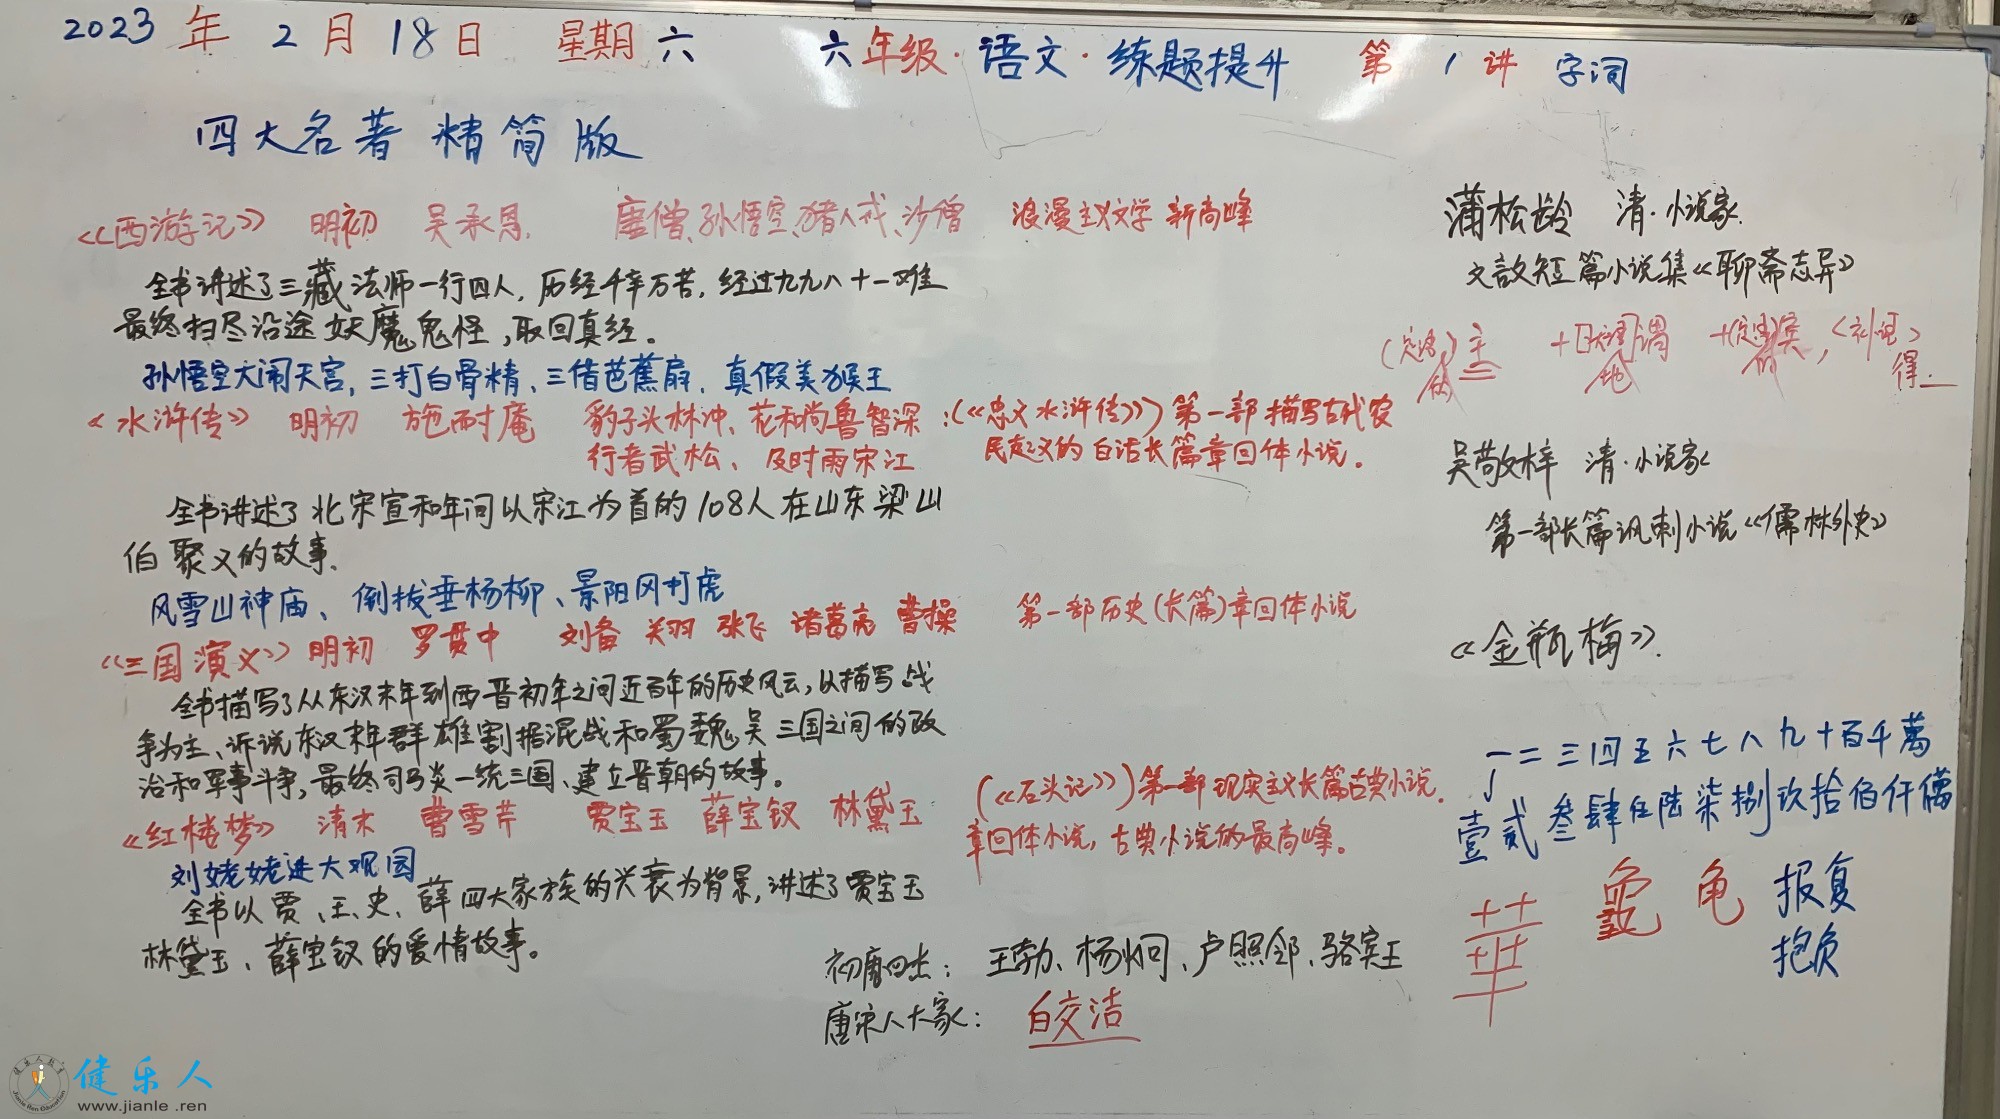 2023年2月18日 星期六 六年级·语文·练题提升 第1讲 字词
四大名著 精简版
《西游记》 明初 吴承恩 唐僧、孙悟空、猪八戒、沙僧 浪漫主义文学 新高峰
全书讲述了三藏法师一行四人,历经千辛万苦,经过九九八十一难
最终扫尽沿途妖魔鬼怪,取回真经。
孙悟空大闹天宫,三打白骨精、三借芭蕉扇,真假美猴王
《水浒传》 明初 施耐庵 豹子头林冲、花和尚鲁智深
行者武松、及时雨宋江
:(《忠义水浒传》)第一部描写古代农
民起义的白话长篇章回体小说。
全书讲述了北宋宣和年间以宋江为首的108人在山东梁山
伯聚义的故事.
风雪山神庙、倒拔垂杨柳、景阳冈打虎
《三国演义》 明初 罗贯中 刘备 关羽 张飞 诸葛亮 曹操 第一部历史(长篇)章回体小说
全书描写了从东汉末年到西晋初年之间近百年的历史风云,以描写战
争为主、诉说东汉末年群雄割据混战和蜀魏吴三国之间的政
治和军事斗争,最终司马炎一统三国、建立晋朝的故事。
《红楼梦》 清末 曹雪芹 贾宝玉 薛宝钗 林黛玉
(《石头记》)第一部现实主义长篇古典小说.
章回体小说,古典小说的最高峰。
刘姥姥进大观园
全书以贾、王、史、薛四大家族的兴衰为背景,讲述了贾宝玉
林黛玉、薛宝钗的爱情故事。
初唐四杰: 王勃、杨炯、卢照邻、骆宾王
唐宋八大家: 白交洁
蒲松龄 清·小说家.
文言文短篇小说集《聊斋志异》
(定语)主 +[状语]谓 +(定语)宾,<补语>
的 地 的 得
吴敬梓 清·小说家
第一部长篇讽刺小说《儒林外史》
《金瓶梅》.
一二三四五六七八九十百千萬
壹贰叁肆伍陆柒捌玖拾佰仟
龟 报复
抱负
健乐人
www.jianle.ren